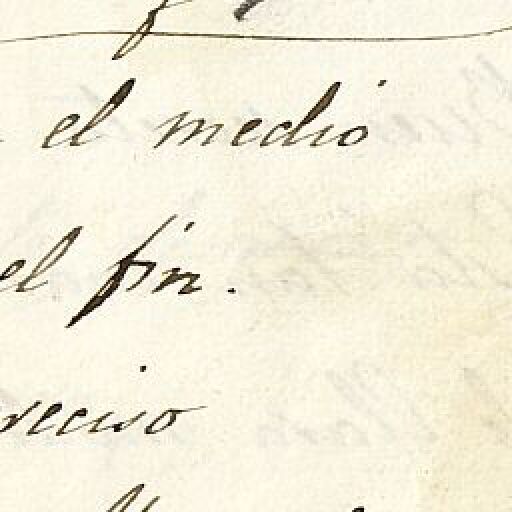 el medio
el fin.
reciso